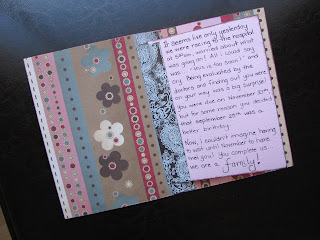 It seems like only yesterday
we were racing to the hospital
at 5:30am, worried about what
was going on! All I could say
was.. "this is too soon!" and
cry. Being evaluated by the
doctors and finding out you were
on your way was a big surprise!
You were due on November 10th
but for some reason you decided
that September 25th was a
better birthday.
Now, I couldn't imagine having
to wait until November to have
met you! You complete us...
we are a family!